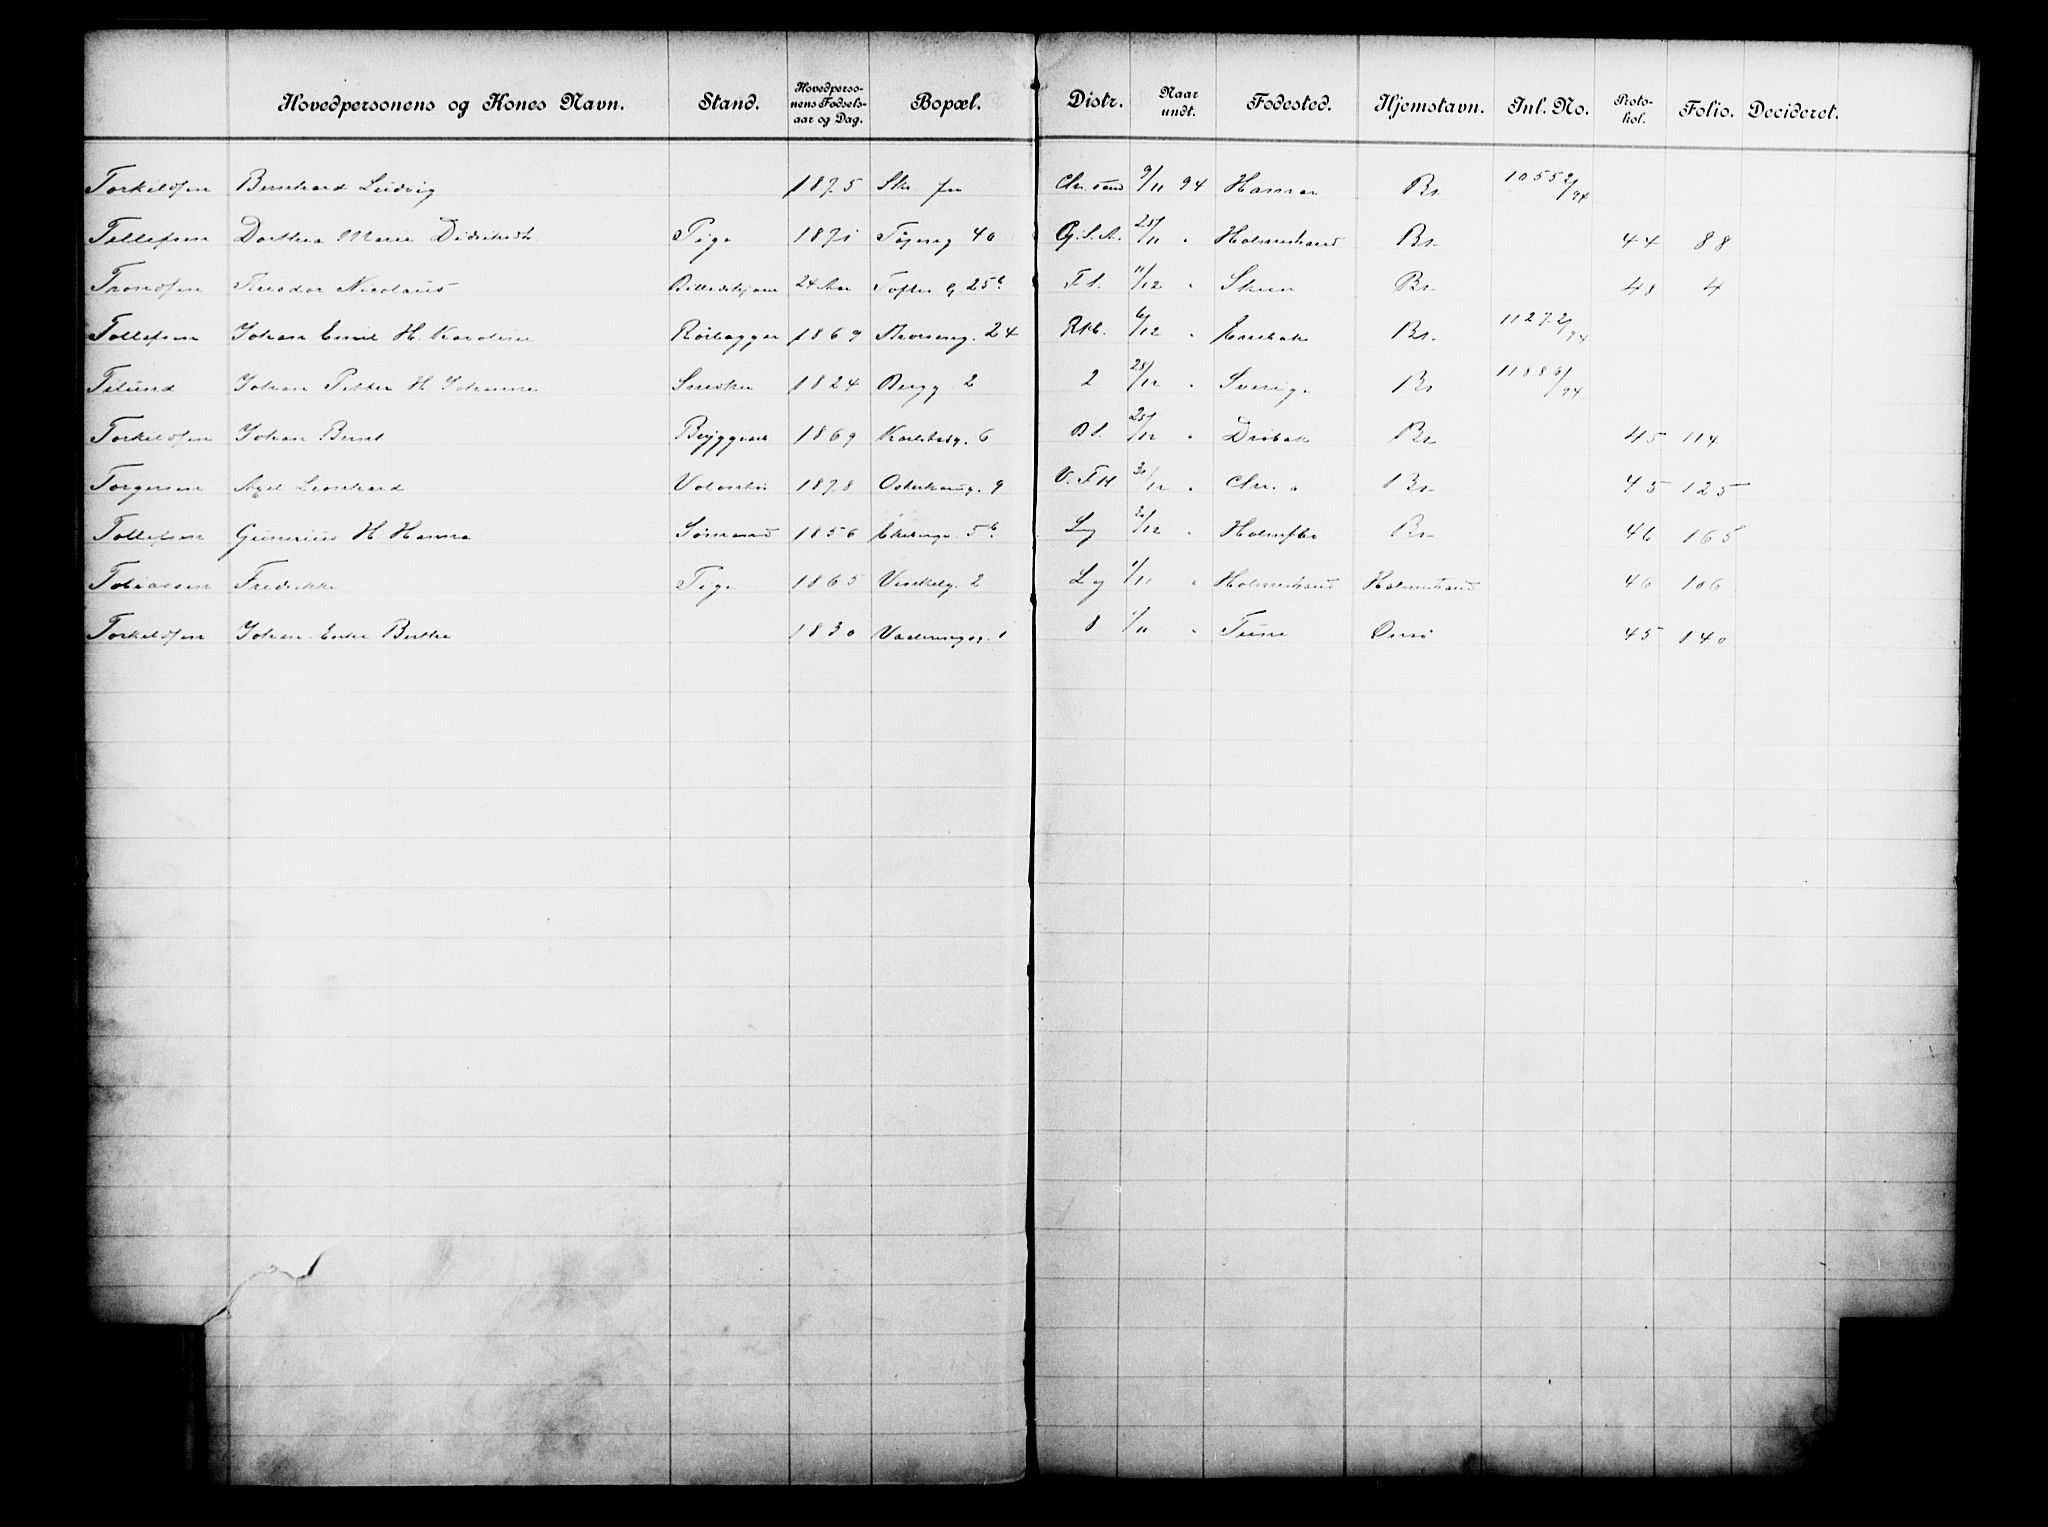 Hovedpersonens og Kones Navn. Stand. Hovedpersonens Fødselsaar og Dag. Bopæl. Distr. Naar undt. Fødested. Hjemstavn. Inl. No. Protokol. Folio. Decideret.
Torkildsen Bernhard Ludvig 1875 Chr.sand 9/11 94 Hamar Br. 10552/94
Tellefsen Dorthea Marie Pige 1871 Tøieng 40 25/11 " Holmestrand Br. 44 88
Trondsen Theodor Nicolaus 24 Aar Toftes G. 25b F.S. 11/12 " Skien Br. 48 4
Tollefsen Johan Emil H. Karoline 1869 24 6/12 " Enebak Br. 11272/94
Tilund Johan Petter H Johanne Snedker 1824 Bergg 2 2 28/12 " Sverige Br. 11886/94
Torkildsen Johan Bernt 1869 Karlsborg. 6 B.S. 25/12 " Drøbak Br. 45 114
Torgersen Axel Leonhard 1878 9 V. F.H /12 " Chr.a Br. 45 125
Tollefsen Gunerius H Hanna 1856 Ekebergv. 5b Lg /12 " Holmsbo Br. 46 165
Tobiassen Fredrikke Pige 1865 2 Lg 1/11 " Holmestrand Holmestrand 46 106
Torkildsen Johan Enke Berthe 1830 Vaalerengg. 1 8 1/11 " Tune Onsø 45 140